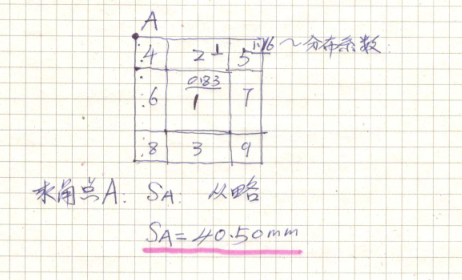 A
4 2 1 5 1.16 ~分布系数
0.83
6 1 7
8 3 9
求角点A: SA: 从略
SA=40.50mm